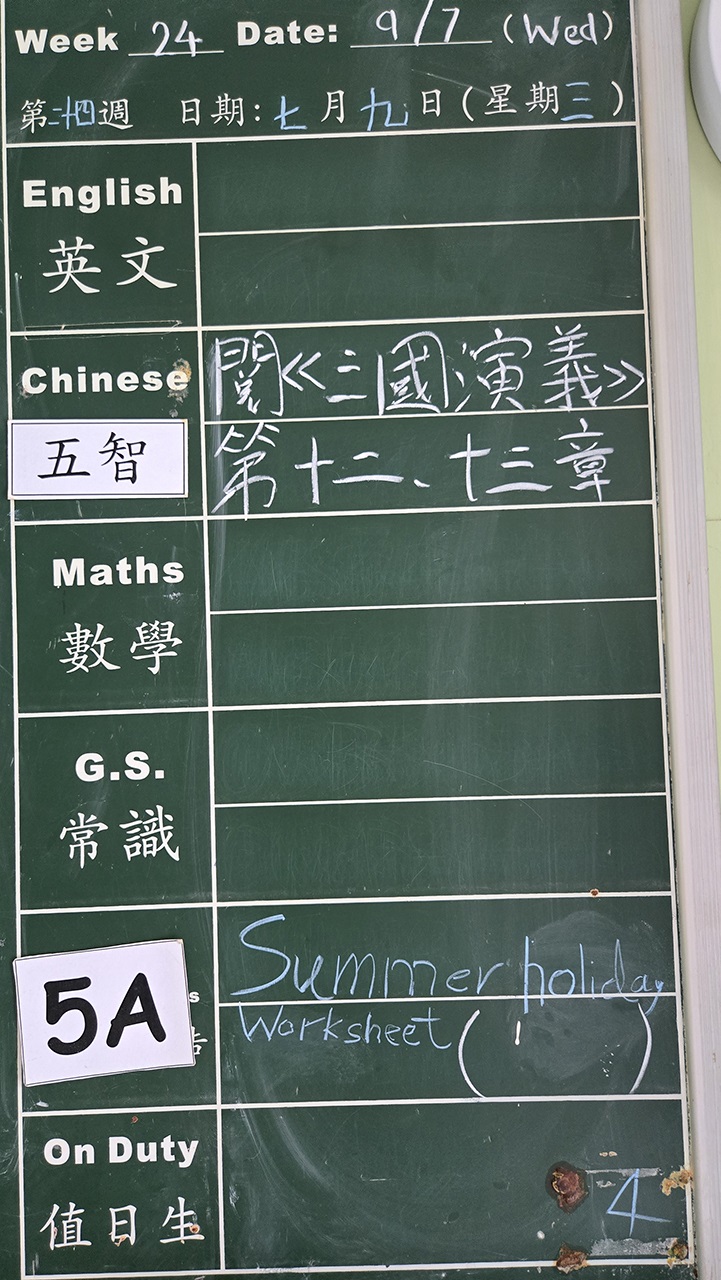 Week 24 Date: 9/7 (Wed)
第二十四週 日期:七月九日(星期三)
English
英文
Chinese 閱《三國演義》
五智 第十二、十三章
Maths
數學
G.S.
常識
Summer holiday
5A s
告 Worksheet ( )
On Duty
值日生 4